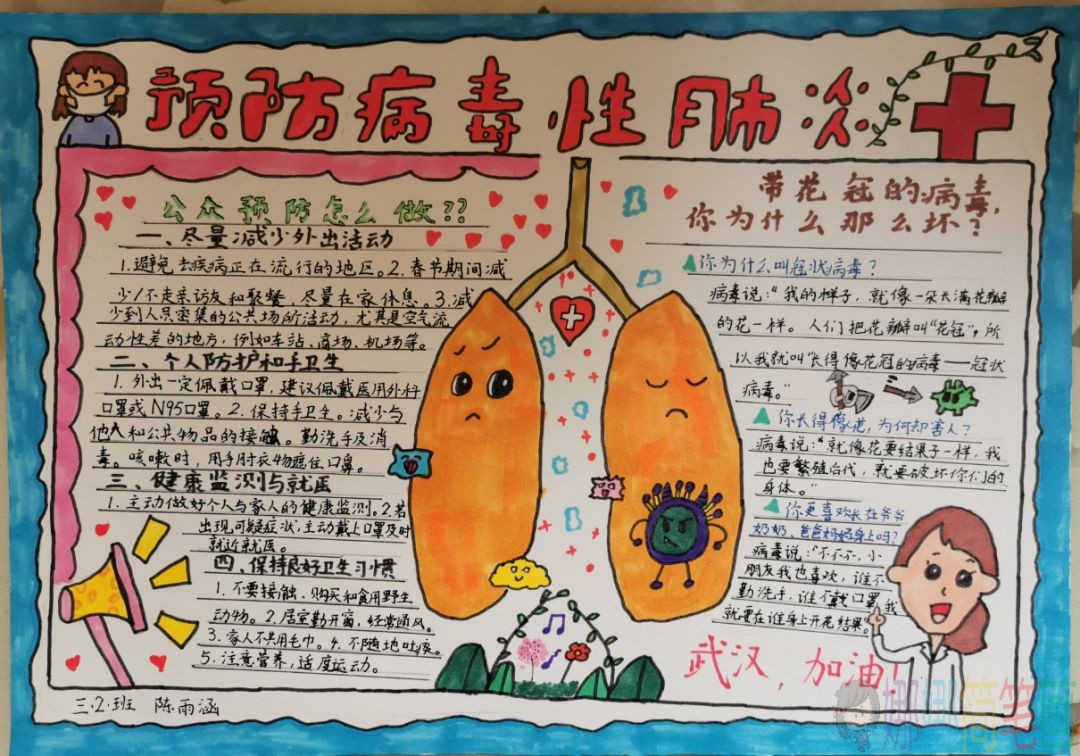 预防病毒性肺炎
公众预防怎么做??
一、尽量减少外出活动
1.避免去疾病正在流行的地区。2.春节期间减
少/不走亲访友和聚餐,尽量在家休息。3.减
少到人员密集的公共场所活动,尤其是空气流
动性差的地方,例如车站、商场、机场等。
二、个人防护和手卫生
1.外出一定佩戴口罩,建议佩戴医用外科
口罩或N95口罩。2.保持手卫生。减少与
他人和公共物品的接触。勤洗手及消
毒。咳嗽时,用手肘衣物遮住口鼻。
三、健康监测与就医
1.主动做好个人与家人的健康监测。2.若
出现可疑症状,主动戴上口罩及时
就近就医。
四、保持良好卫生习惯
1.不要接触、购买和食用野生
动物。2.居室勤开窗,经常通风。
3.家人不共用毛巾。4.不随地吐痰。
5.注意营养,适度运动。
带花冠的病毒,
你为什么那么坏?
你为什么叫冠状病毒?
病毒说:“我的样子,就像一朵长满花瓣
的花一样。人们把花瓣叫“花冠”,所
以我就叫“长得像花冠的病毒——冠状
病毒。”
你长得像花,为何却害人?
病毒说:“就像花要结果子一样,我
也要繁殖后代,就要破坏你们的
身体。”
你更喜欢长在爷爷
奶奶,爸爸妈妈身上吗?
病毒说:“不不不,小
朋友我也喜欢,谁不
勤洗手,谁不戴口罩,我
就要在谁身上开花结果”
武汉,加油!
三.2.班 陈雨涵
娜娜简笔画